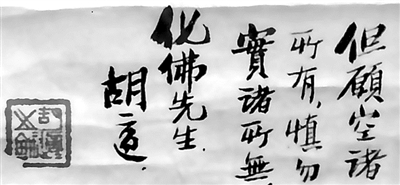 但願空諸
所有,慎勿
實諸所無,
化佛先生.
胡適.